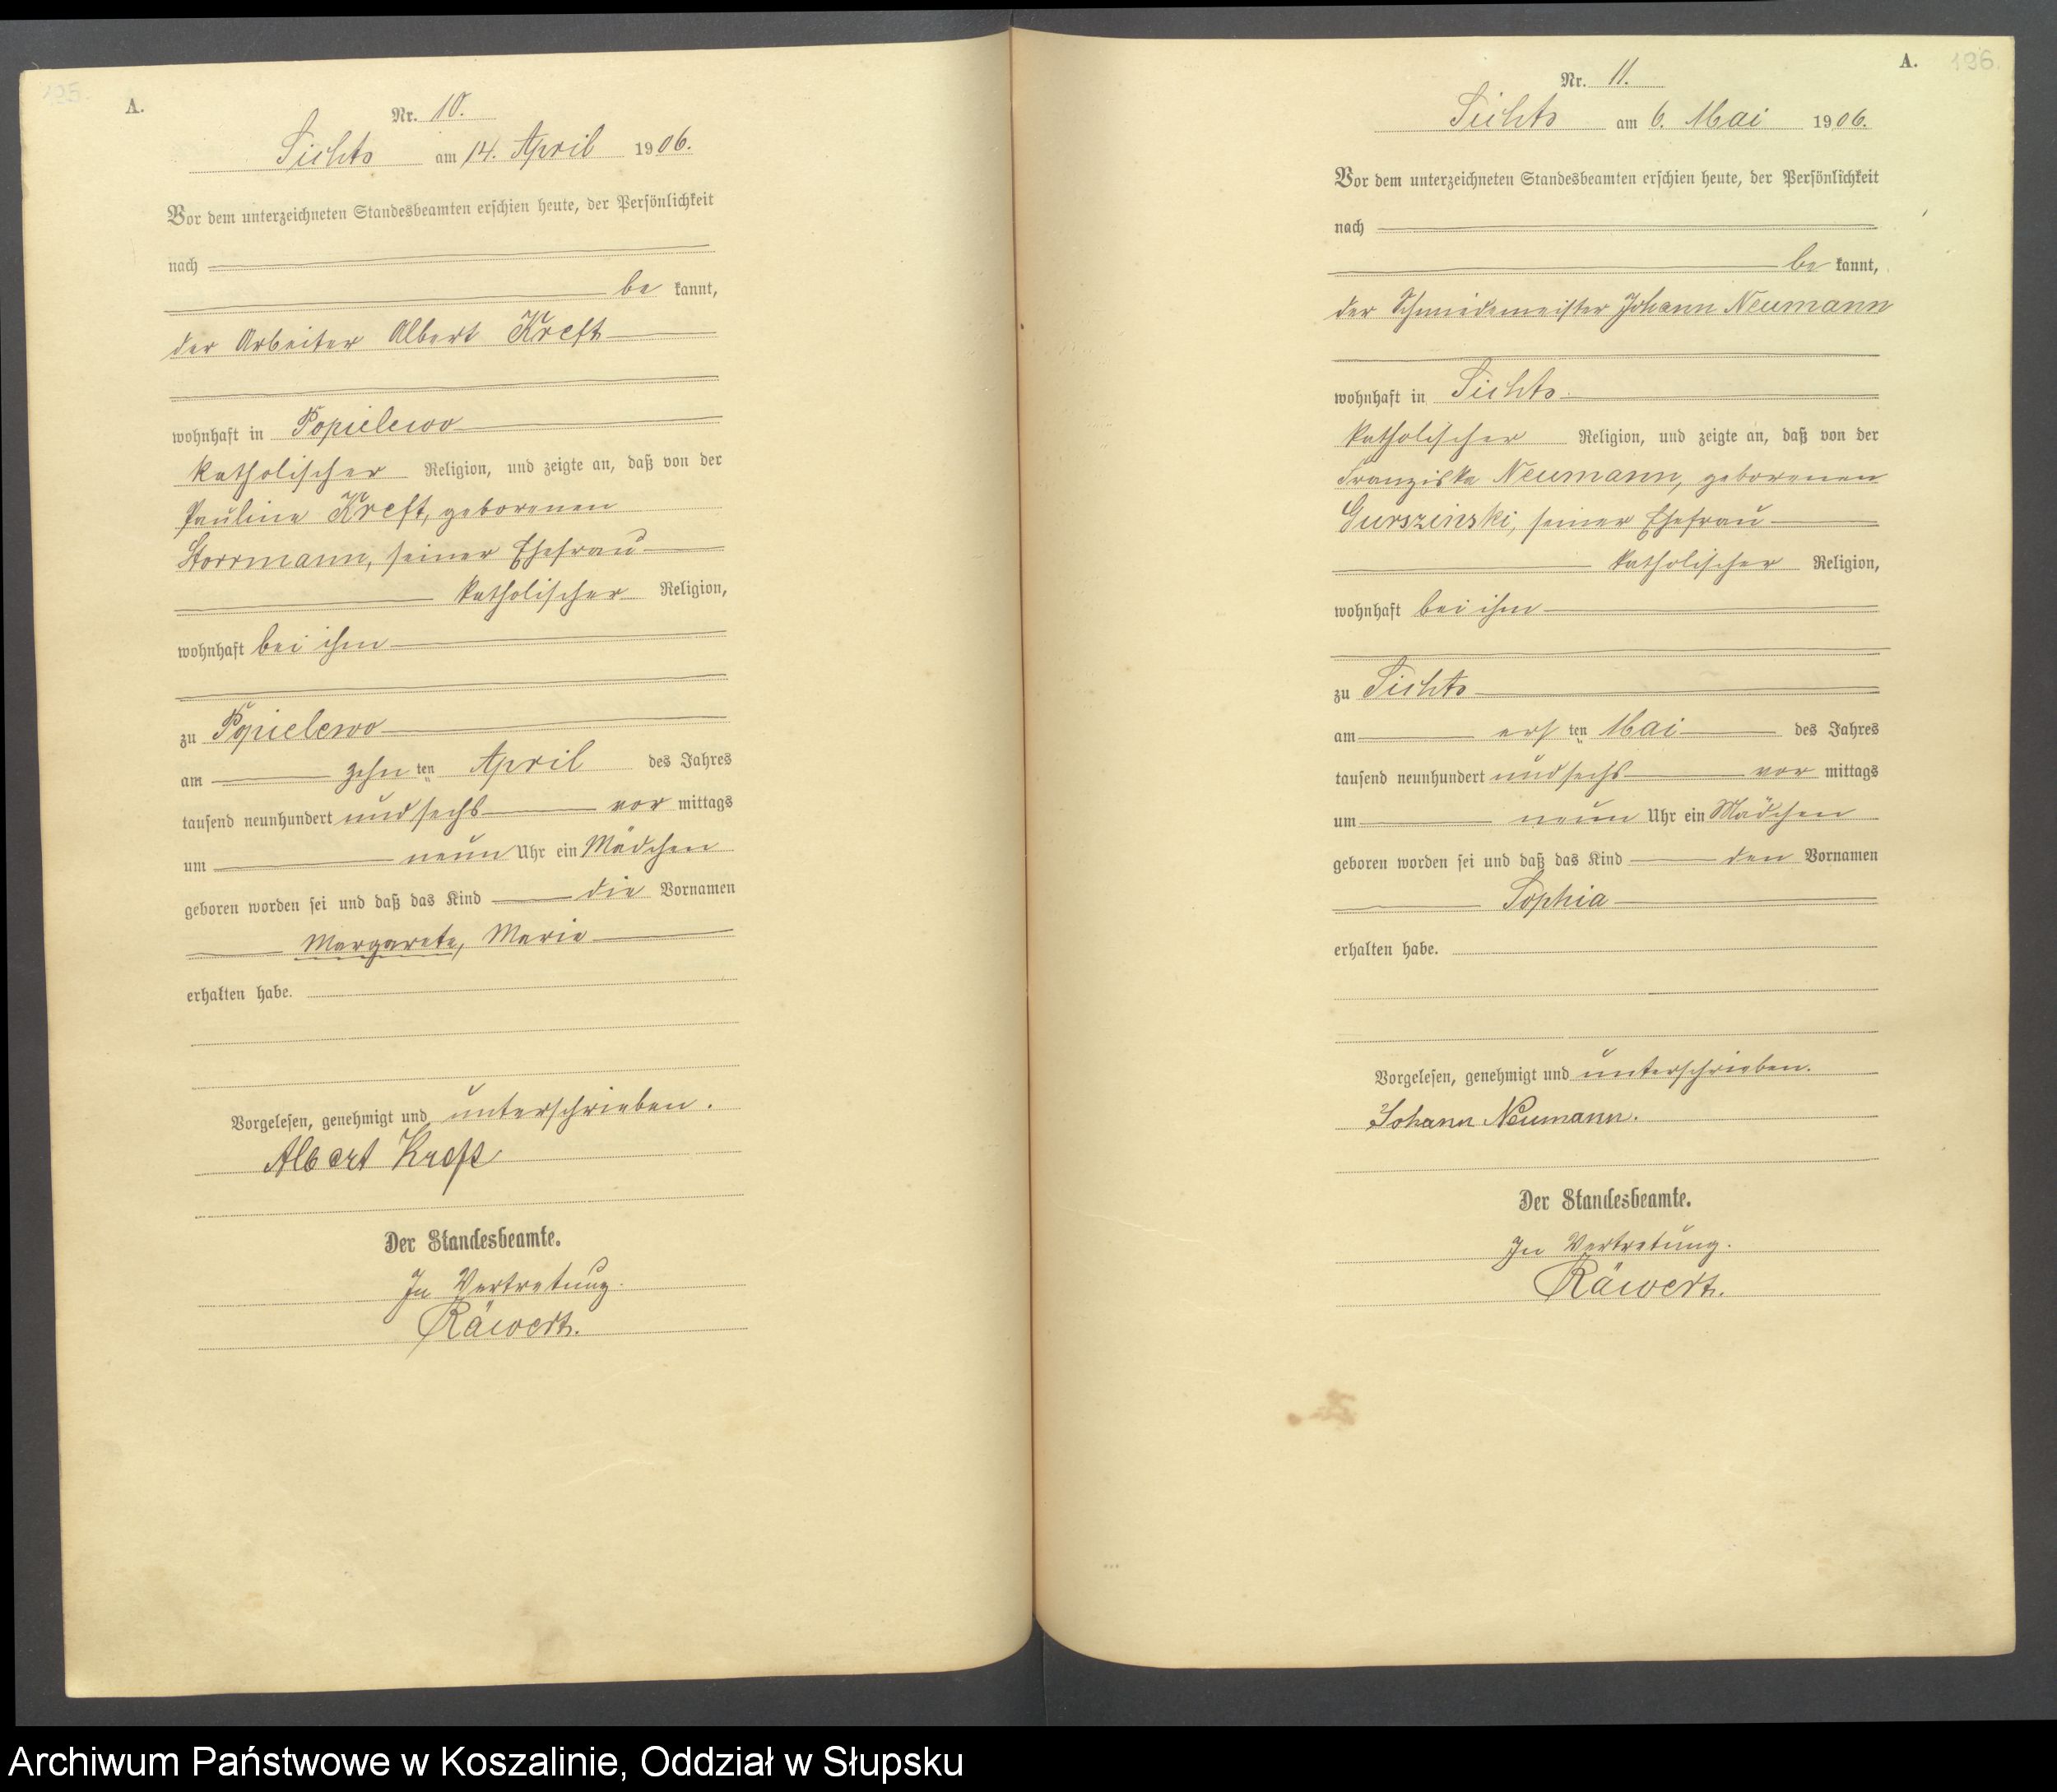 125.
A.
Nr. 10.
Sichts am 14. April 1906.
Vor dem unterzeichneten Standesbeamten erschien heute, der Persönlichkeit
nach
be kannt,
der Arbeiter Albert Kreft
wohnhaft in Popielewo
katholischer Religion, und zeigte an, daß von der
Pauline Kreft, geborenen
Storrmann, seiner Ehefrau
katholischer Religion,
wohnhaft bei ihm
zu Popielewo
am zehn ten April des Jahres
tausend neunhundert und sechs vor mittags
um neun Uhr ein Mädchen
geboren worden sei und daß das Kind die Vornamen
Margarete, Marie
erhalten habe.
Vorgelesen, genehmigt und unterschrieben.
Albert Kreft
Der Standesbeamte.
In Vertretung.
Räwert.
A. 126.
Nr. 11.
Sichts am 6. Mai 1906.
Vor dem unterzeichneten Standesbeamten erschien heute, der Persönlichkeit
nach
be kannt,
der Schmiedemeister Johann Neumann
wohnhaft in Sichts
katholischer Religion, und zeigte an, daß von der
Franziska Neumann, geborenen
Gurszinski, seiner Ehefrau
katholischer Religion,
wohnhaft bei ihm
zu Sichts
am ers ten Mai des Jahres
tausend neunhundert und sechs vor mittags
um neun Uhr ein Mädchen
geboren worden sei und daß das Kind den Vornamen
Sophia
erhalten habe.
Vorgelesen, genehmigt und unterschrieben.
Johann Neumann.
Der Standesbeamte.
In Vertretung.
Räwert.
Archiwum Państwowe w Koszalinie, Oddział w Słupsku